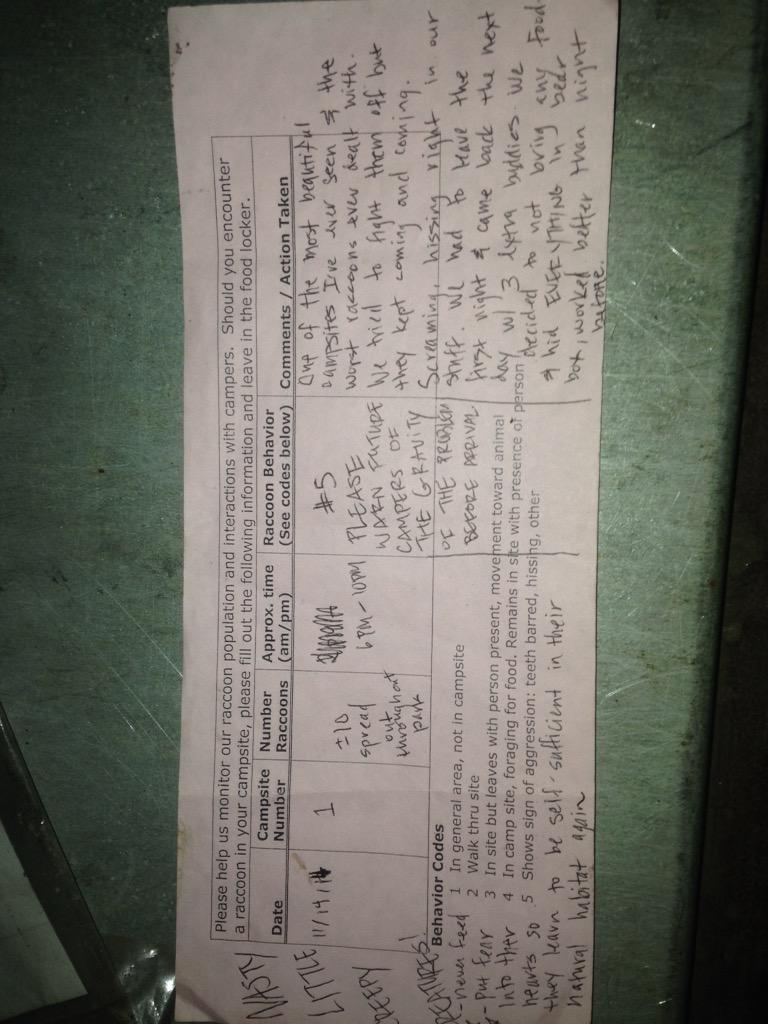 Please help us monitor our raccoon population and interactions with campers. Should you encounter
a raccoon in your campsite, please fill out the following information and leave in the food locker.
Date
Campsite Number
Number Raccoons
Approx. time (am/pm)
Raccoon Behavior (See codes below)
Comments / Action Taken
11/19/14
1
±10
spread
out
throughout
park
6PM-10PM
#5
PLEASE
WARN FUTURE
CAMPERS OF
THE GRAVITY
OF THE PROBLEM
BEFORE ARRIVAL
One of the most beautiful
campsites I've ever seen & the
worst raccoons ever dealt with.
We tried to fight them off but
they kept coming and coming.
Screaming, hissing right in our
stuff. We had to leave the
first night & came back the next
day w/ 3 extra buddies. We
decided to not bring any food
& hid EVERYTHING in bear
box, worked better than night
before.
NASTY
LITTLE
CREEPY
CREATURES!
- never feed
- put fear
into their
hearts so
they learn to be self-sufficient in their
natural habitat again
Behavior Codes
1 In general area, not in campsite
2 Walk thru site
3 In site but leaves with person present, movement toward animal
4 In camp site, foraging for food. Remains in site with presence of person
5 Shows sign of aggression: teeth barred, hissing, other